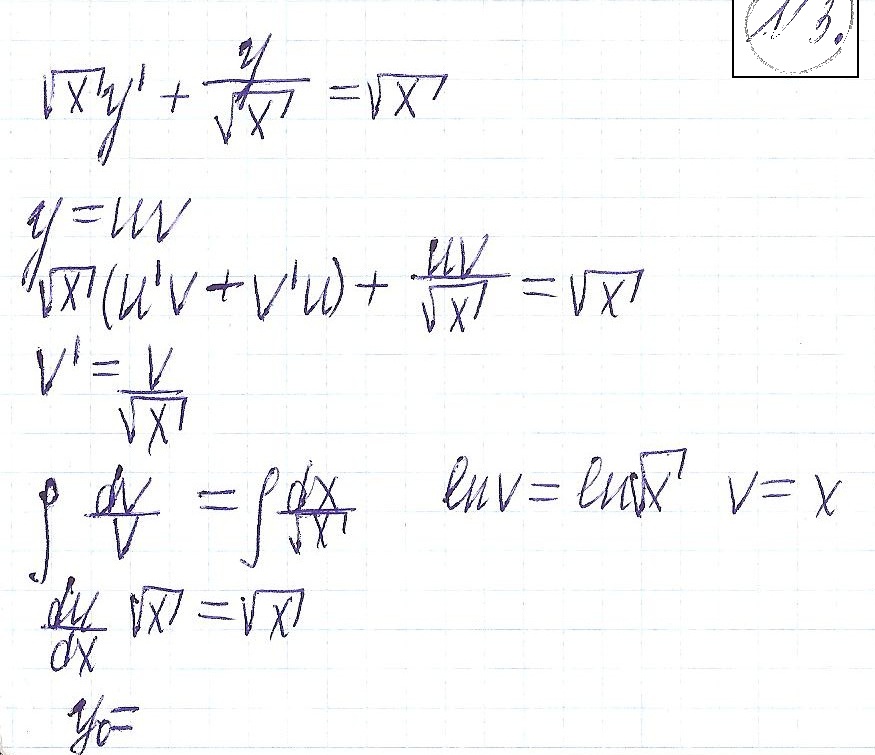 N3.
√x y' + y/√x = √x
y = uv
√x (u'v + v'u) + uv/√x = √x
v' = v/√x
∫ dv/v = ∫ dx/√x ln v = ln √x v = x
du/dx √x = √x
y₀ =